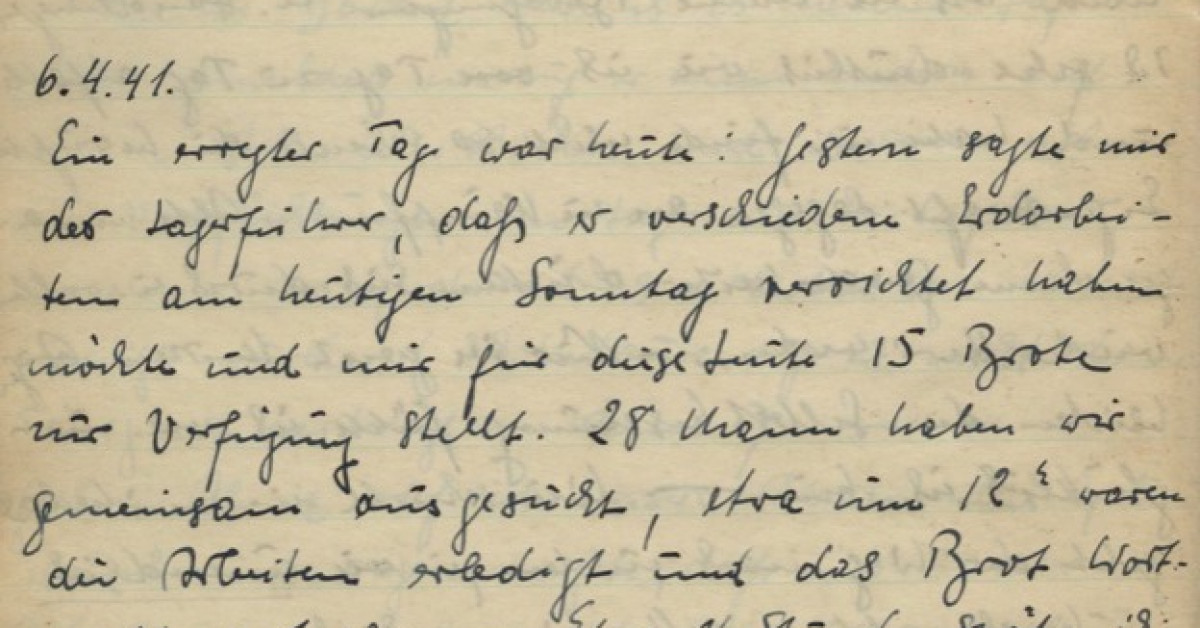 6.4.41.
Ein erregter Tag war heute! Gestern sagte mir
der Lagerführer, daß er verschiedene Erdarbei-
ten am heutigen Sonntag verrichtet haben
möchte und mir für diese Leute 15 Brote
zur Verfügung stellt. 28 Mann haben wir
gemeinsam ausgesucht, etwa um 12 h waren
die Arbeiten erledigt und das Brot Wort-